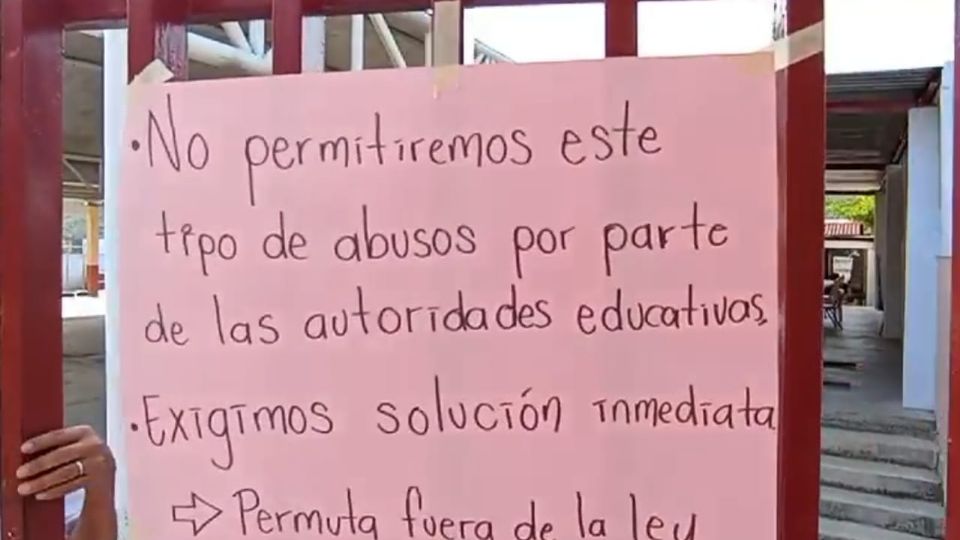 ·No permitiremos este
tipo de abusos por parte
de las autoridades educativas.
·Exigimos solución inmediata
⇨ Permuta fuera de la ley